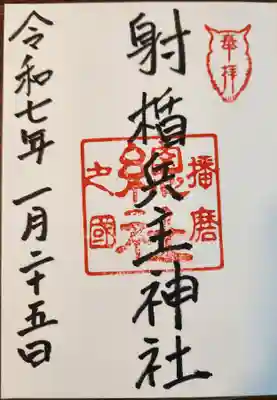 奉拝
射楯兵主神社
播磨
総社
之國
令和七年一月二十五日